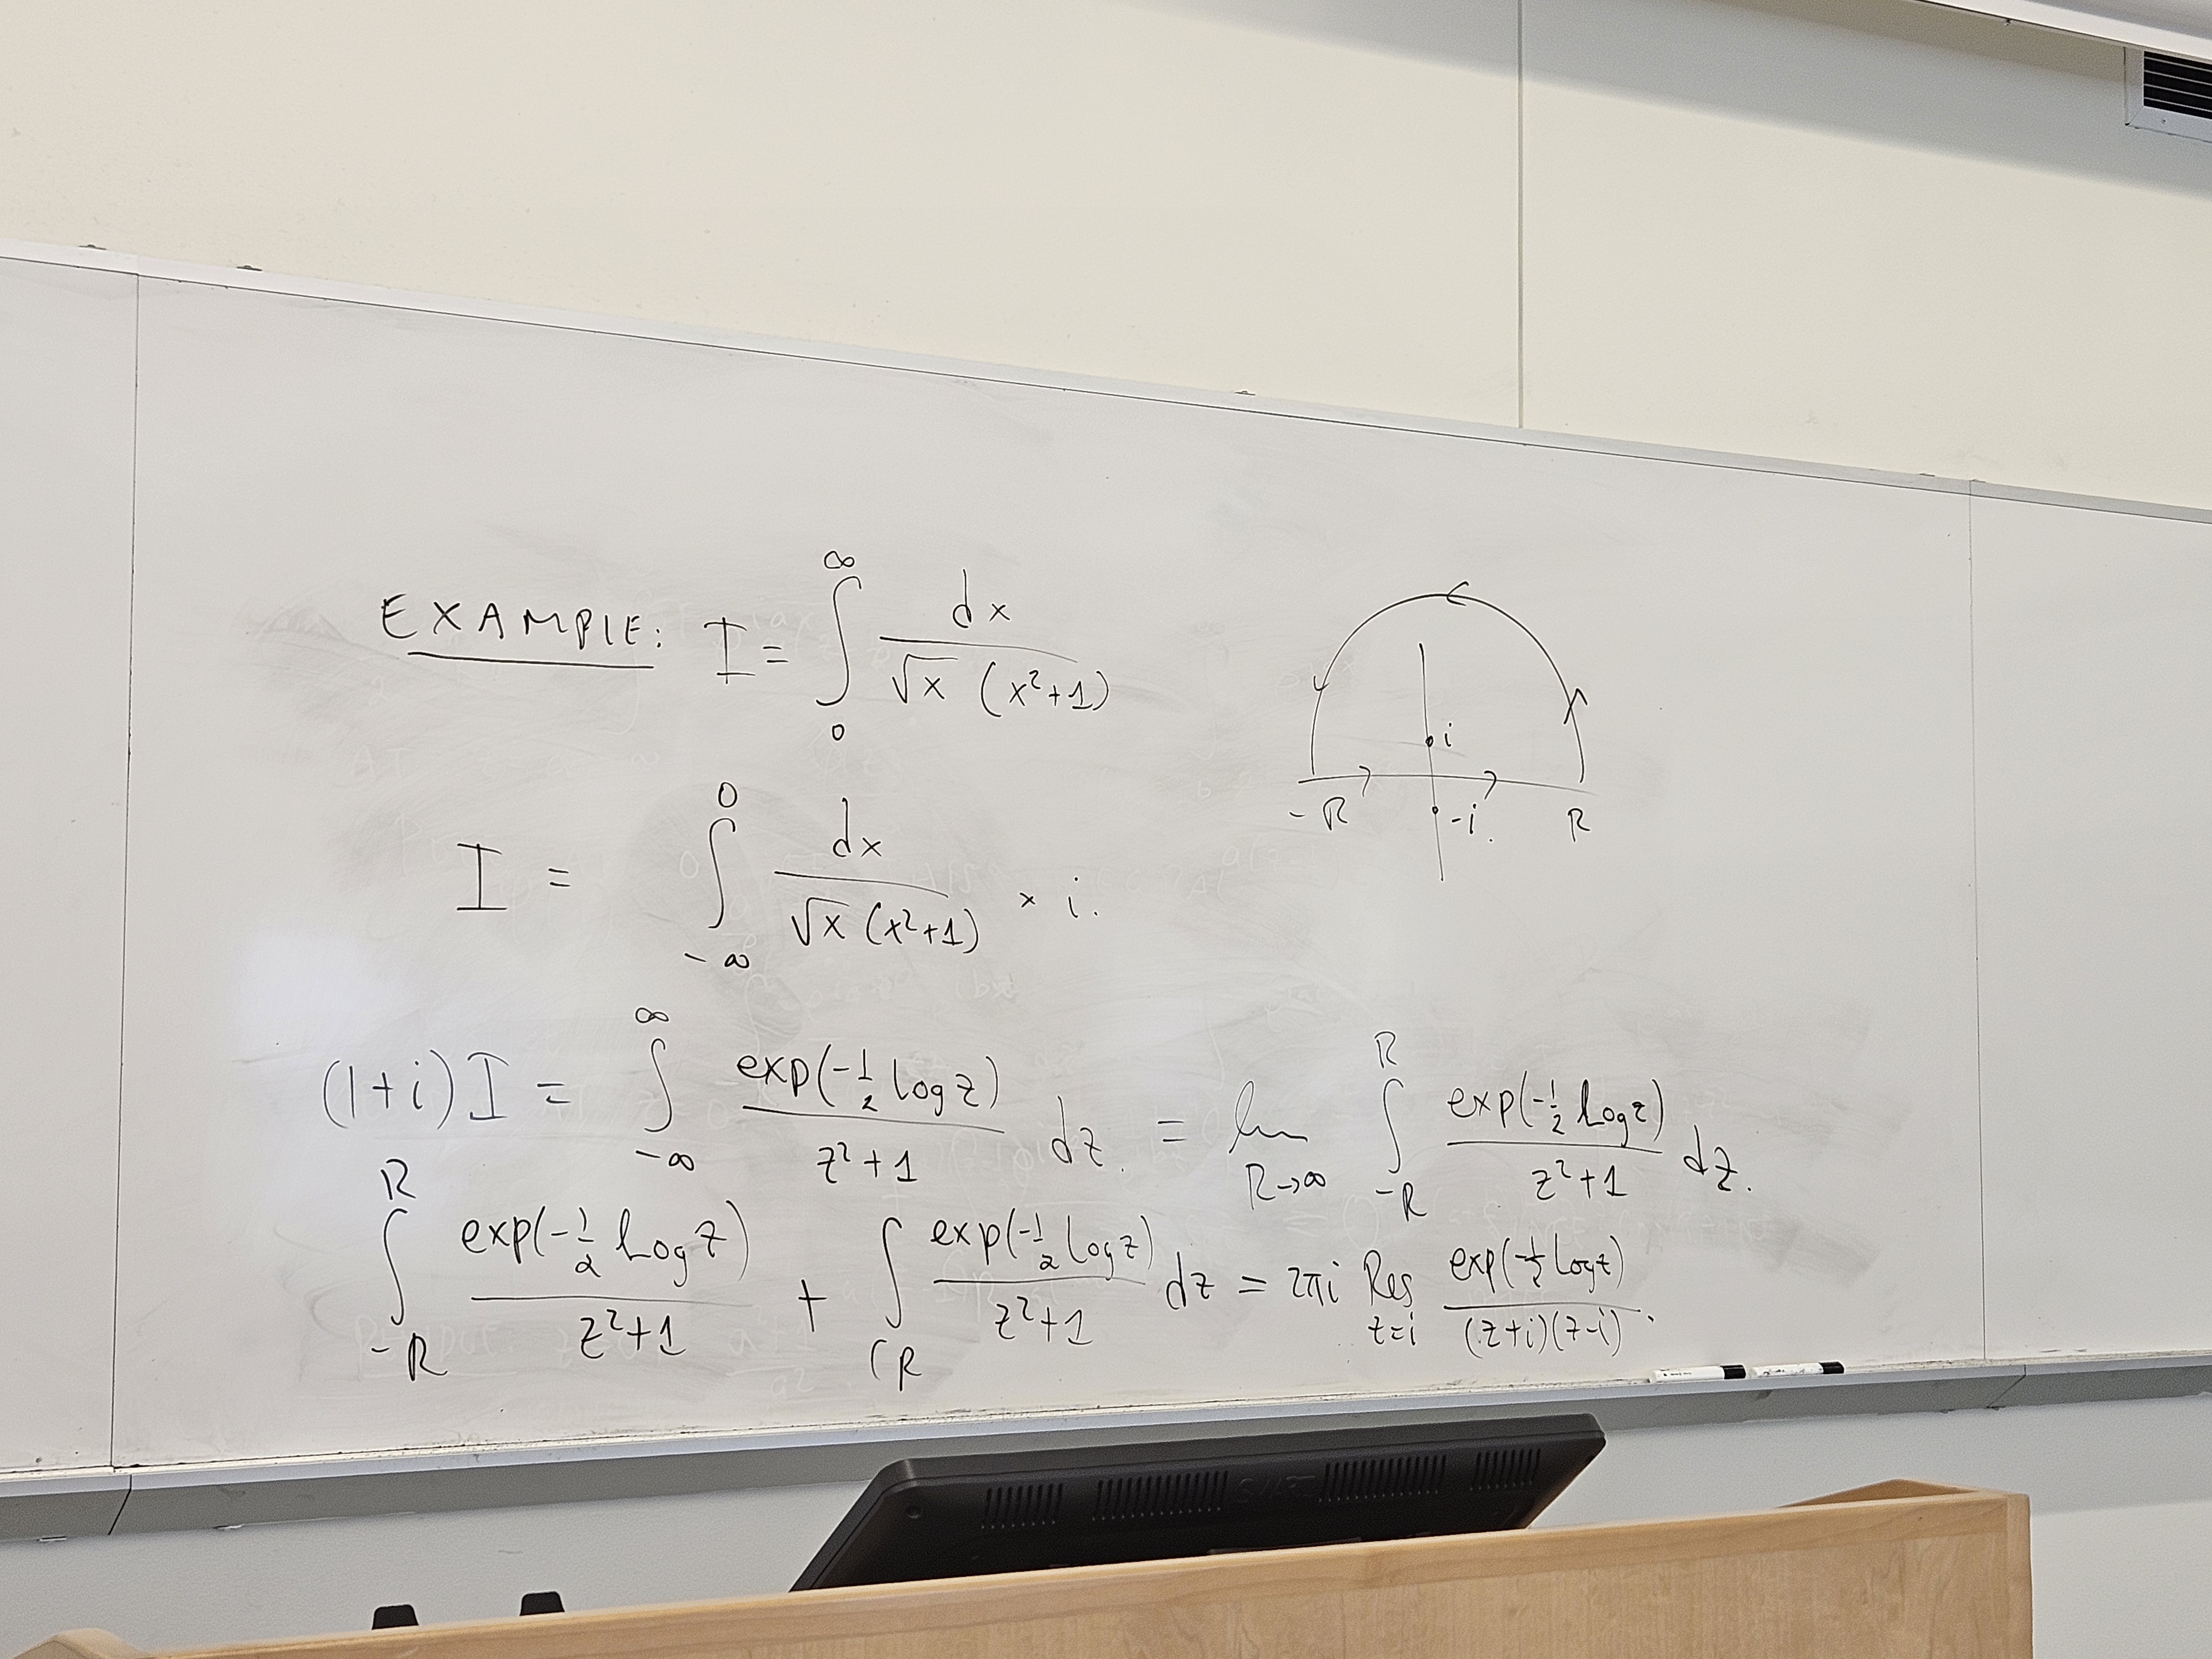 EXAMPLE: I = ∫_0^∞ dx / (√x (x²+1))
I = ∫_{-∞}^0 dx / (√x (x²+1)) × i.
(1+i) I = ∫_{-∞}^∞ exp(-1/2 log z) / (z²+1) dz. = lim_{R→∞} ∫_{-R}^R exp(-1/2 Log z) / (z²+1) dz.
∫_{-R}^R exp(-1/2 Log z) / (z²+1) + ∫_{C_R} exp(-1/2 Log z) / (z²+1) dz = 2πi Res_{z=i} exp(-1/2 Log z) / ((z+i)(z-i)).
i
-R -i. R